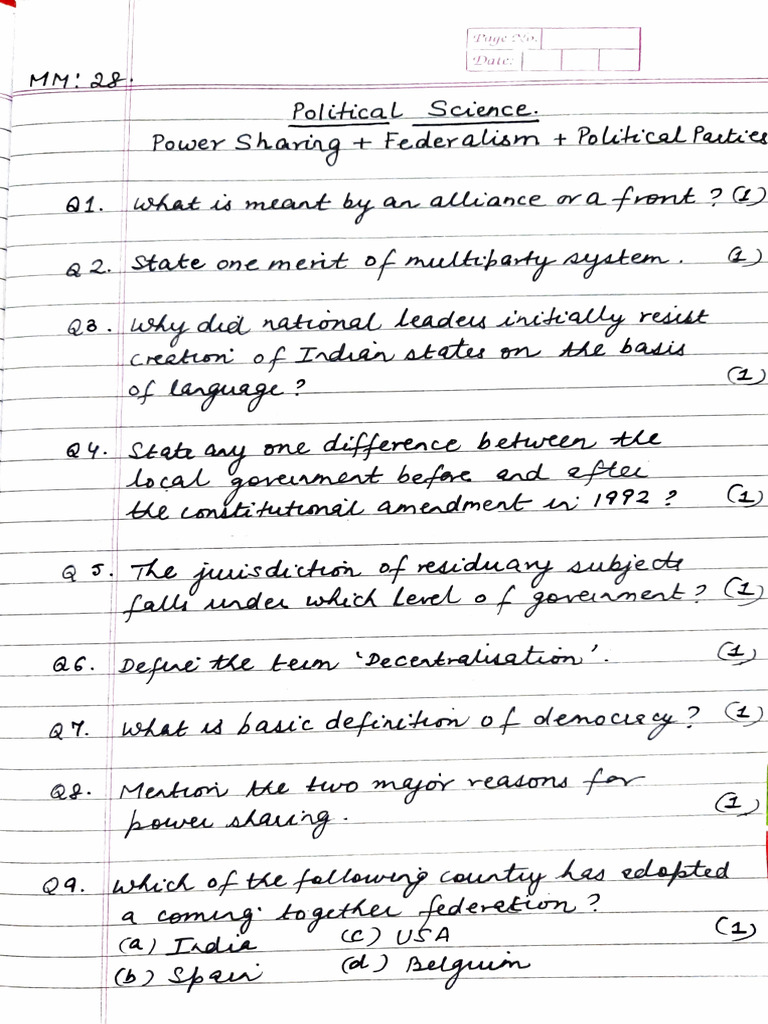 Page No.
Date:
MM: 28.
Political Science.
Power Sharing + Federalism + Political Parties
Q1. What is meant by an alliance or a front? (1)
Q2. State one merit of multiparty system. (1)
Q3. Why did national leaders initially resist
creation of Indian states on the basis
of language? (1)
Q4. State any one difference between the
local government before and after
the constitutional amendment in 1992? (1)
Q5. The jurisdiction of residuary subjects
falls under which level of government? (1)
Q6. Define the term 'Decentralisation'. (1)
Q7. What is basic definition of democracy? (1)
Q8. Mention the two major reasons for
power sharing. (1)
Q9. Which of the following country has adopted
a coming together federation? (1)
(a) India (c) USA
(b) Spain (d) Belgium